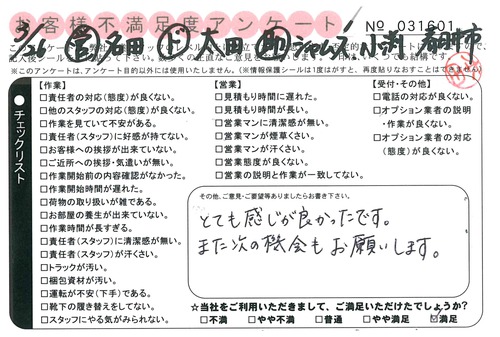 お客様不満足度アンケート
No 031601
3/26 名田 ド 太田 小渕 春日井市
※このアンケートは、アンケート目的以外には使用いたしません。(※情報保護シールは1度はがすと、再度貼りなおすことはできません)
チェックリスト
【作業】
□責任者の対応(態度)が良くない。
□他のスタッフの対応(態度)が良くない。
□作業を見ていて不安がある。
□責任者(スタッフ)に好感が持てない。
□お客様への挨拶が出来ていない。
□ご近所への挨拶・気遣いが無い。
□作業開始前の内容確認がなかった。
□作業開始時間が遅れた。
□荷物の取り扱いが雑である。
□お部屋の養生が出来ていない。
□作業時間が長すぎる。
□責任者(スタッフ)に清潔感が無い。
□責任者(スタッフ)が汗くさい。
□トラックが汚い。
□梱包資材が汚い。
□運転が不安(下手)である。
□靴下の履き替えをしてない。
□スタッフにやる気がみられない。
【営業】
□見積もり時間に遅れた。
□見積もり時間が長い。
□営業マンに清潔感が無い。
□営業マンが煙草くさい。
□営業マンが汗くさい。
□営業態度が良くない。
□営業の説明と作業が一致してない。
【受付・その他】
□電話の対応が良くない。
□オプション業者の説明
・作業が良くない。
□オプション業者の対応
(態度)が良くない。
その他、ご意見・ご要望等ありましたらお書き下さい。
とても感じが良かったです。
また次の機会もお願いします。
☆当社をご利用いただきまして、ご満足いただけたでしょうか?
□不満 □やや不満 □普通 □やや満足 ☑満足